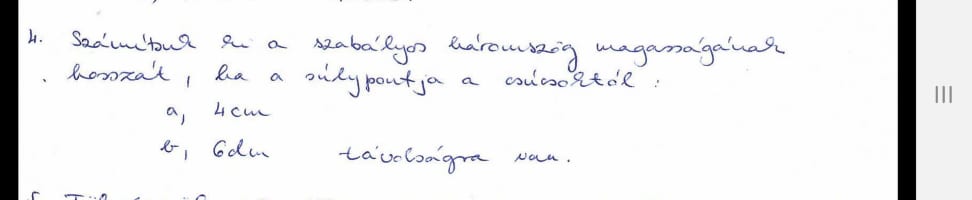 4. Számítsuk ki a szabályos háromszög magasságának
hosszát, ha a súlypontja a csúcsoktól :
a, 4cm
b, 6dm távolságra van.